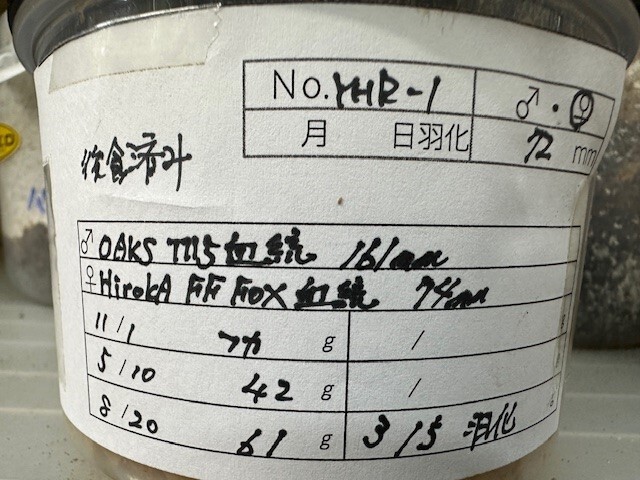 No. YHR-1 ♂・♀
月 日羽化 72 mm
後食済み
♂ OAKS T115血統 161mm
♀ HirokA FF FOX 血統 74mm
11/1 フカ g /
5/10 42 g /
8/20 61 g 3/5 羽化